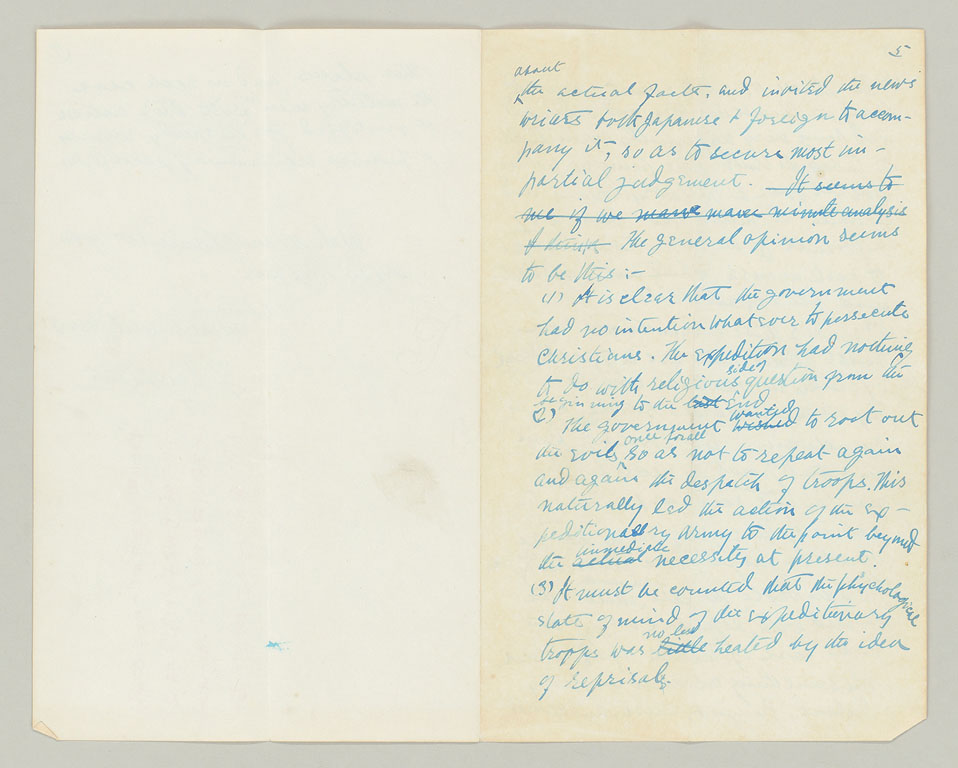 5
about
the actual facts, and invited the news
writers both Japanese & foreign to accom-
pany it, so as to secure most im-
partial judgement. It seems to
me if we make make minute analysis
I think The general opinion seems
to be this :-
(1) It is clear that the government
had no intention whatever to persecute
Christians. The expedition had nothing
to do with religious side of question from the
beginning to the last end
(2) The government wished wanted to root out
the evils once for all so as not to repeat again
and again the despatch of troops. This
naturally led the action of the ex-
peditionary army to the point beyond
the actual immediate necessity at present.
(3) It must be counted that the phychological
state of mind of the expeditionary
troops was little no less heated by the idea
of reprisals.